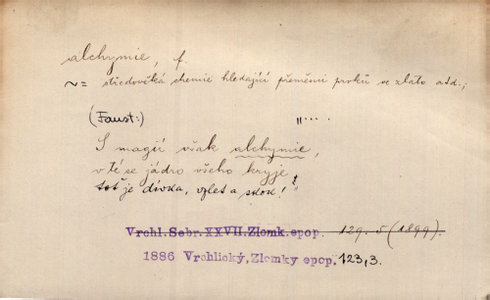 alchymie, f.
~ = středověká chemie hledající přeměnu prvků ve zlato atd.;
(Faust:) „....
S magií však alchymie,
v té se jádro všeho kryje
toť je dívka, vzlet a skok!"
Vrchl. Sebr. XXVII. Zlomk. epop. 129. 5 (1899).
1886 Vrchlický, Zlomky epop. 123,3.